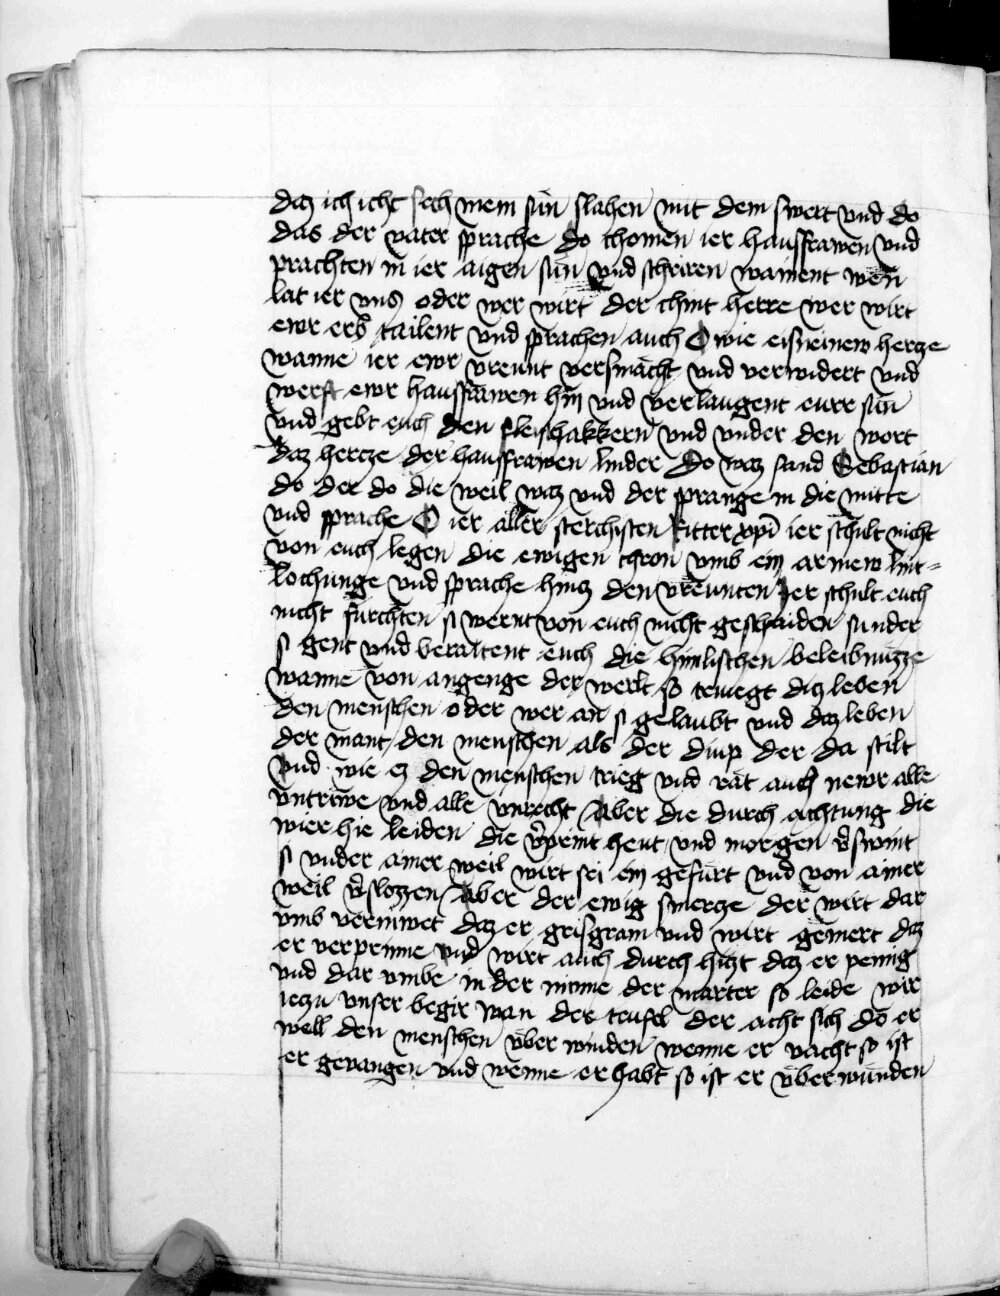 daz ich icht sech mein sün slahen mit dem swert vnd do
das der vater sprache do chomen ier hausfrawen vnd
prachten in ier aigen sün vnd schriren wainent wen
lat ier vns oder wer wirt der chint herre wer wirt
ewr erb tailent vnd sprachen auch O wie eisneinew hercze
wanne ier ewr vreunt versmächt vnd verwidert vnd
werft ewr hausfrawen hin vnd verlaugent eurr sün
vnd gebt euch den fleischakkern vnd vnder den wort
daz hercze der hausfrawen linder Do waz sand Sebastian
do der do die weil waz vnd der sprange in die mitte
vnd sprache O ier aller sterchisten Ritter xpi ier schült nicht
von euch legen die ewigen chron vmb ein armew lint-
lochunge vnd sprache hincz den vreunten Ier schult euch
nicht fürchten si wernt von euch nicht geschaiden sunder
si gent vnd beraitent euch die himlischen beleibnüzze
wanne von angenge der werlt so tewegt daz leben
den menschen oder wer an si gelaubt vnd daz leben
der mant den menschen als der diup der da stilt
vnd wie ez den menschen trieg vnd rät auch newr alle
vntriwe vnd alle vnrecht Aber die durch achtung die
wier hie leiden die v̄print heut vnd morgen v̄swint
si vnder ainer weil wirt sei ein gefürt vnd von ainer
weil v̄slozzen Aber der ewig smercze der wirt dar
vmb verniwet daz er grisgram vnd wirt gemert daz
er verprinne vnd wirt auch durch hiczt daz er peinig
vnd dar vmbe in der minne der marter so leide wir
ieczu vnser begir wan der teufel der acht sich do er
well den menschen vber winden wenne er vacht so ist
er gevangen vnd wenne er habt so ist er vberwunden